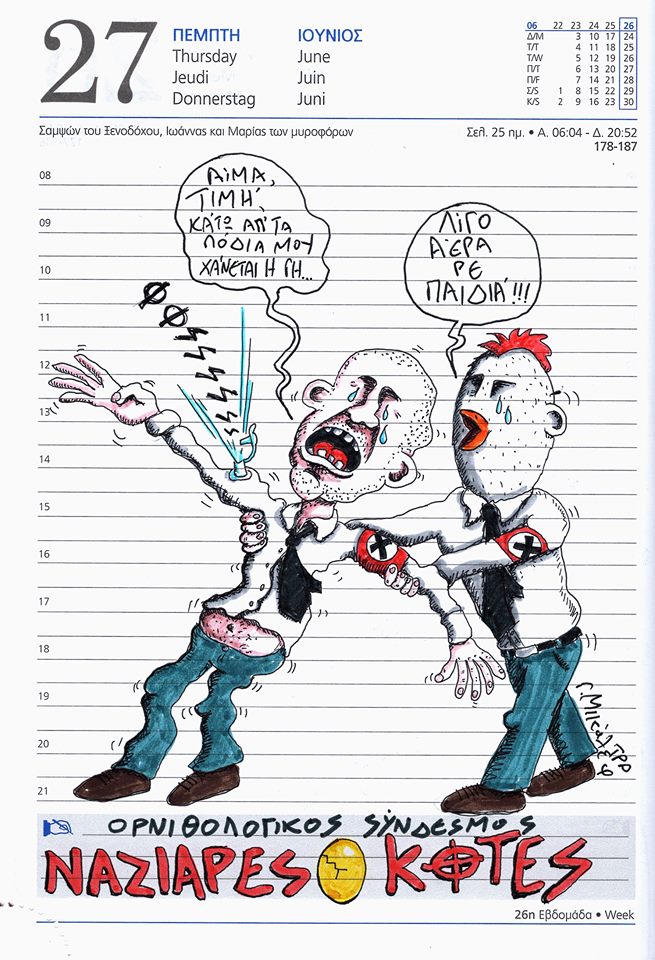 27
ΠΕΜΠΤΗ ΙΟΥΝΙΟΣ
Thursday June
Jeudi Juin
Donnerstag Juni
06 22 23 24 25 26
Δ/M 3 10 17 24
T/T 4 11 18 25
T/W 5 12 19 26
Π/T 6 13 20 27
Π/F 7 14 21 28
Σ/S 1 8 15 22 29
K/S 2 9 16 23 30
Σαμψών του Ξενοδόχου, Ιωάννας και Μαρίας των μυροφόρων
Σελ. 25 ημ. • Α. 06:04 - Δ. 20:52
178-187
08
09
10
11
12
13
14
15
16
17
18
19
20
21
ΑΙΜΑ,
ΤΙΜΗ,
ΚΑΤΩ ΑΠ'ΤΑ
ΠΟΔΙΑ ΜΟΥ
ΧΑΝΕΤΑΙ Η ΓΗ...
ΛΙΓΟ
ΑΕΡΑ
ΡΕ
ΠΑΙΔΙΑ!!!
ΟΡΝΙΘΟΛΟΓΙΚΟΣ SΥΝΔΕSΜΟS
ΝΑΖΙΑΡΕS ΚΟΤΕS
26η Εβδομάδα • Week